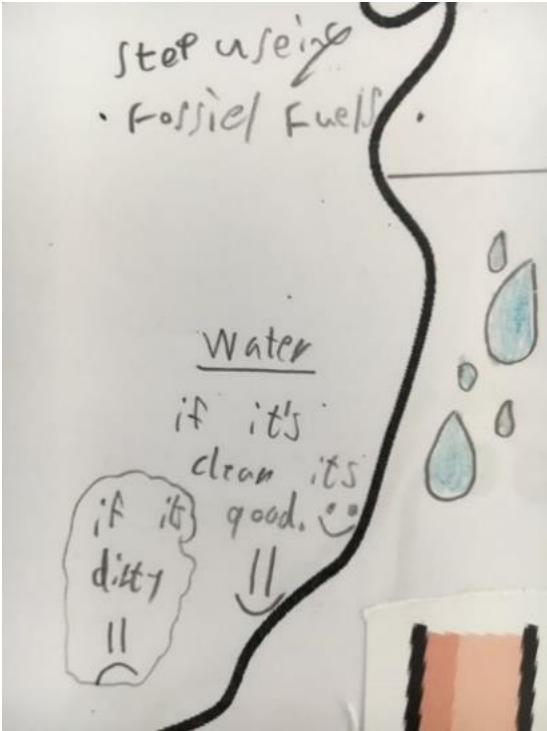 stop useing
• Fossiel Fuels •
Water
if it's
clean it's
good.
if its
dirty